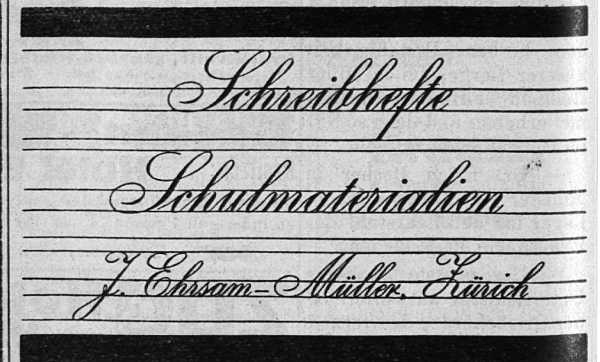 Schreibhefte
Schulmaterialien
J. Ehrsam-Müller, Zürich